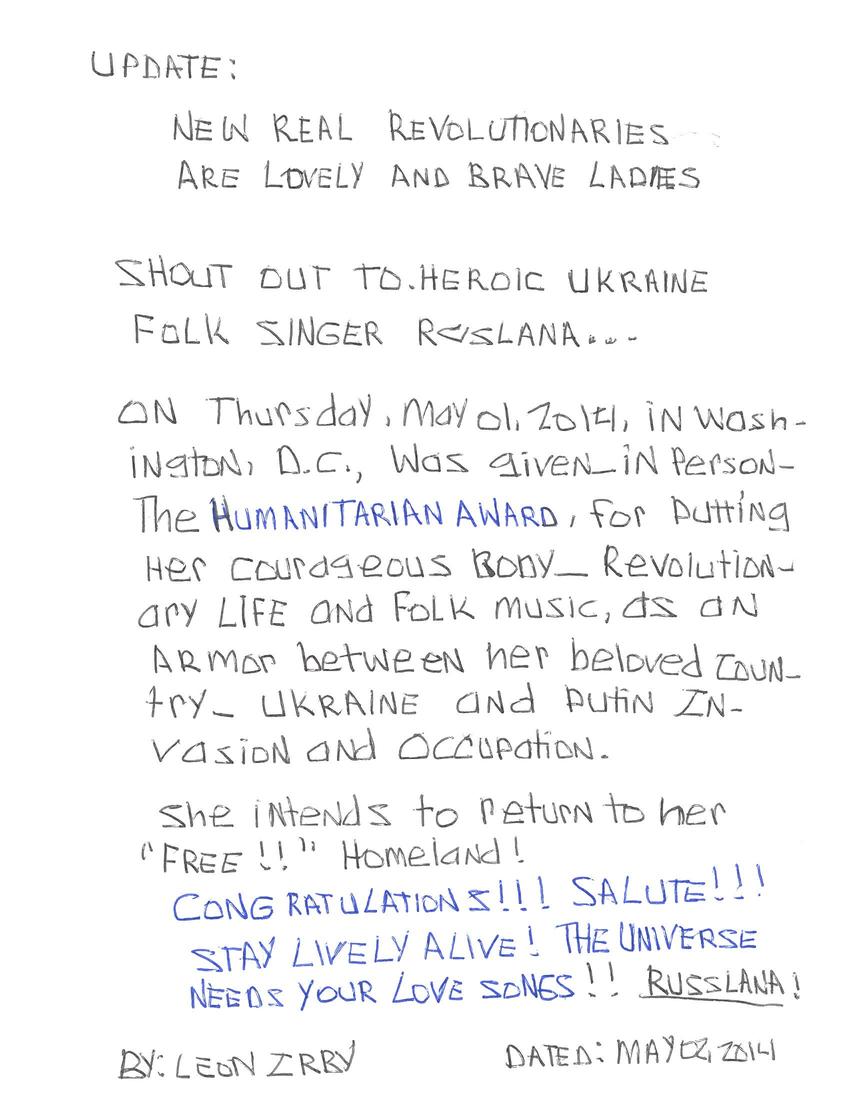 UPDATE:
NEW REAL REVOLUTIONARIES
ARE LOVELY AND BRAVE LADIES
SHOUT OUT TO.HEROIC UKRAINE
FOLK SINGER RUSLANA...
ON Thursday, May 01, 2014, iN Wash-
iNgtoN, D.C., Was given_iN Person-
The HUMANITARIAN AWARD, for putting
Her courageous BODY_ Revolution-
ary LIFE and FOLK music, as an
ARMor between her beloved COUN-
try_ UKRAINE and Putin IN-
vasion and Occupation.
she iNteNds to return to her
"FREE!!" Homeland!
CONGRATULATIONS!!! SALUTE!!!
STAY LIVELY ALIVE! THE UNIVERSE
NEEDS YOUR LOVE SONGS!! RUSSLANA!
BY: LEON IRBY DATED: MAY 02, 2014